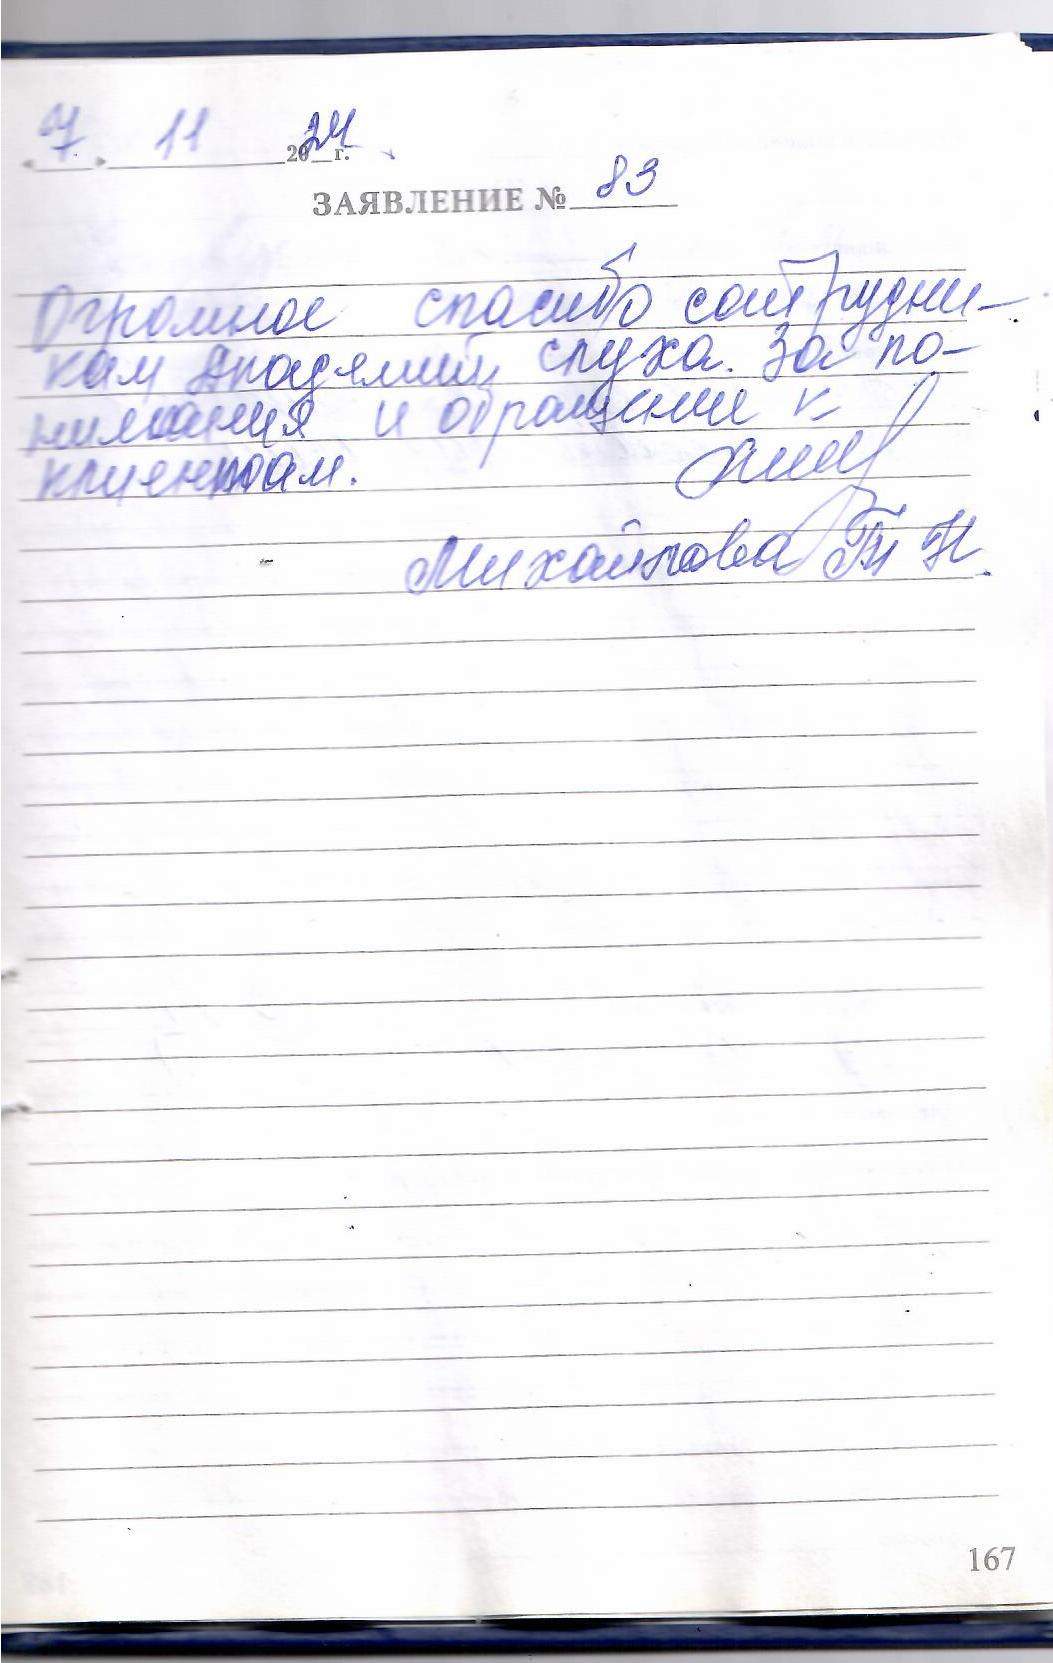 « 7 » 11 2024 г.
ЗАЯВЛЕНИЕ № 83
Огромное спасибо сотрудни-
кам Академии слуха. За по-
нимания и обращение к
клиентам.
Михайлова Т Н.
167